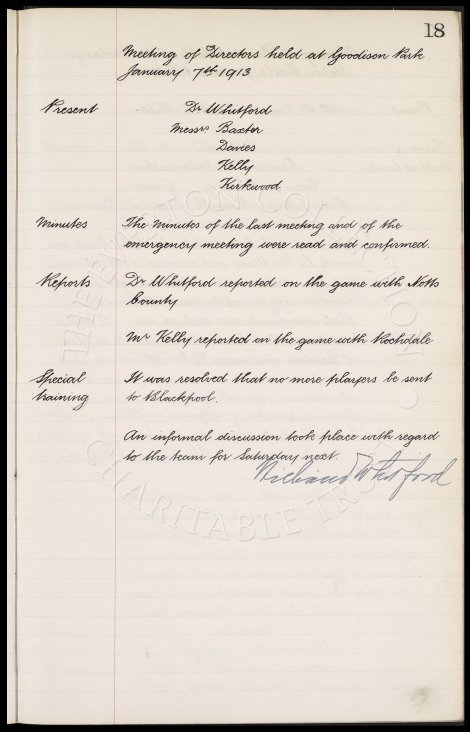 18
Meeting of Directors held at Goodison Park
January 7th 1913
Present Dr Whitford
Messrs Baxter
Davies
Kelly
Kirkwood
Minutes The minutes of the last meeting and of the
emergency meeting were read and confirmed.
Reports Dr Whitford reported on the game with Notts
County
Mr Kelly reported on the game with Rochdale
Special It was resolved that no more players be sent
training to Blackpool.
An informal discussion took place with regard
to the team for Saturday next.
William Whitford
CHARITABLE TRUST